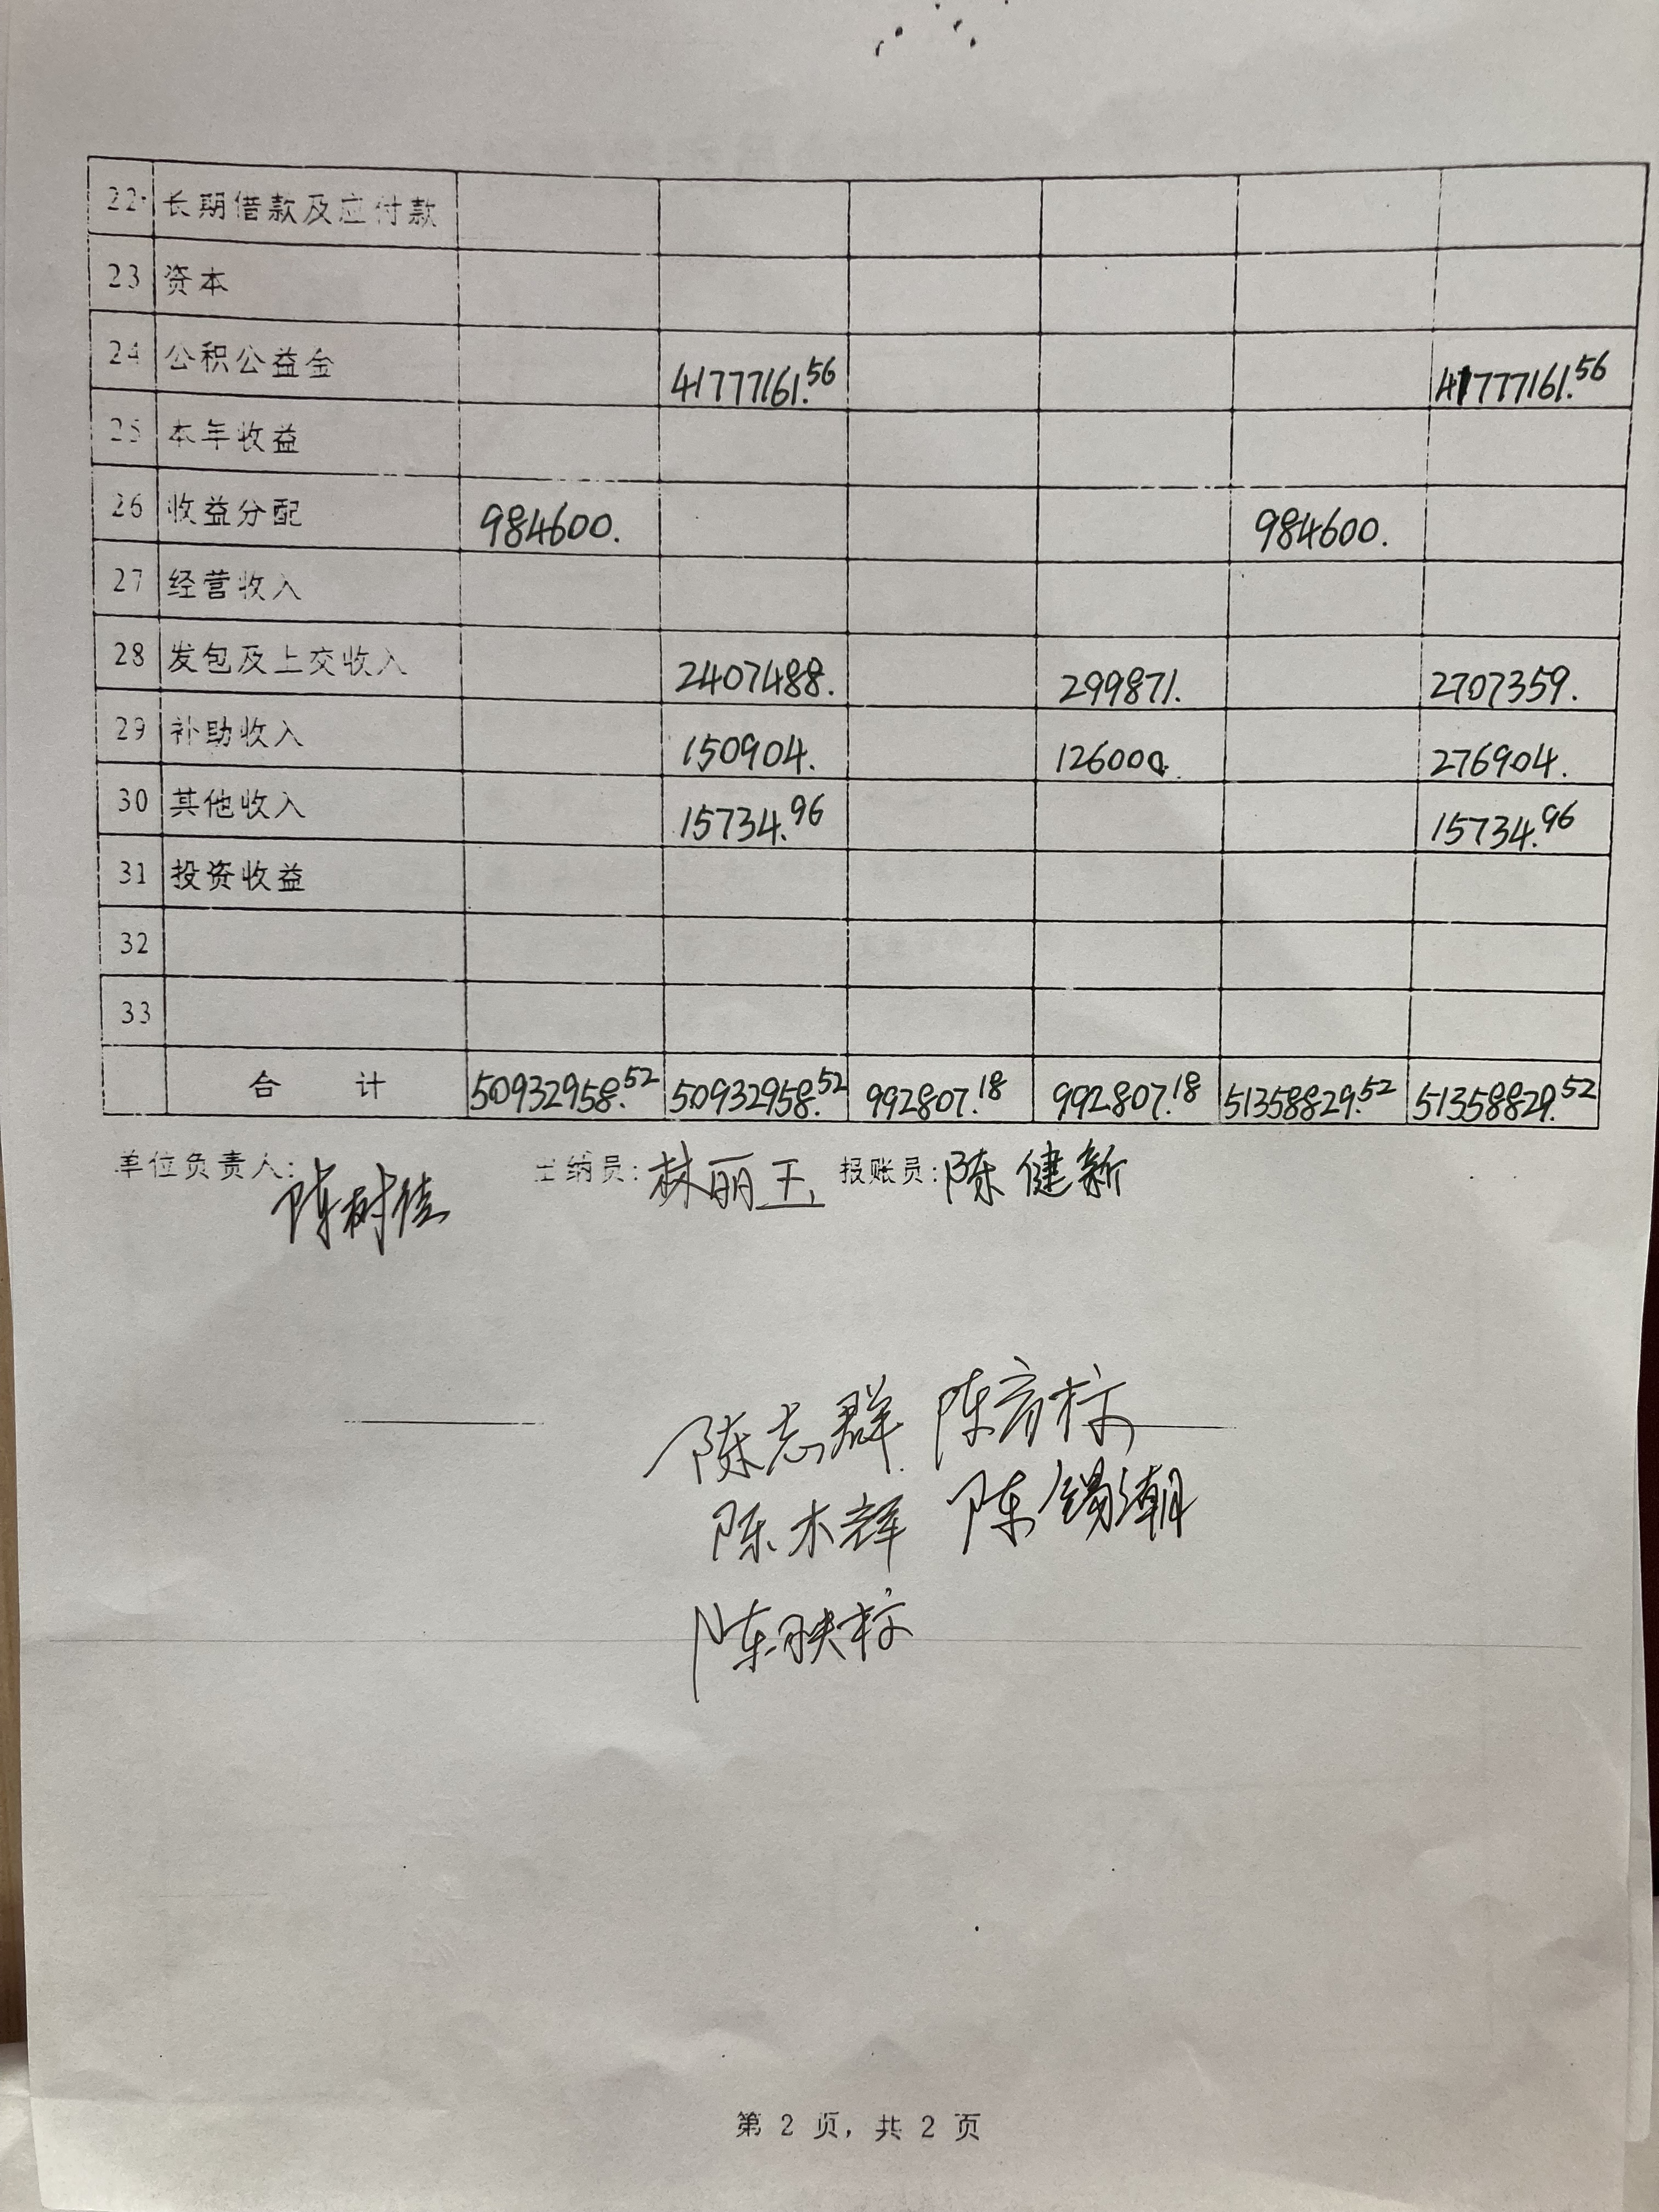 22 长期借款及应付款
23 资本
24 公积公益金 41777161.56 41777161.56
25 本年收益
26 收益分配 984600. 984600.
27 经营收入
28 发包及上交收入 2407488. 299871. 2707359.
29 补助收入 150904. 126000. 276904.
30 其他收入 15734.96 15734.96
31 投资收益
32
33
合 计 50932958.52 50932958.52 992807.18 992807.18 51358829.52 51358829.52
单位负责人: 陈树佳 出纳员: 林丽玉 报账员: 陈健新
陈志群
陈木辉 陈锡潮
陈映
第 2 页, 共 2 页